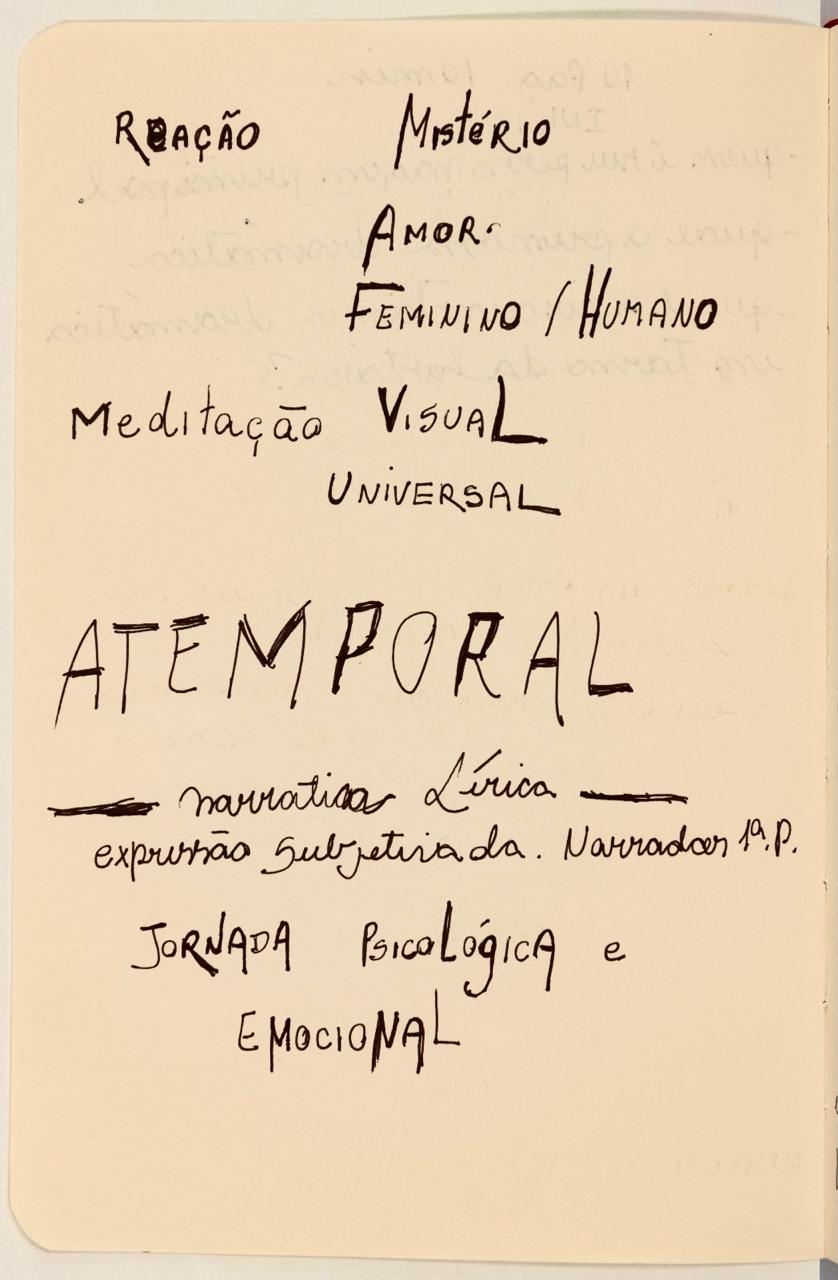 REAÇÃO MISTÉRIO
AMOR.
FEMININO / HUMANO
Meditação VISUAL
UNIVERSAL
ATEMPORAL
— narrativa Lírica —
expressão subjetivada. Narrador 1ª.P.
JORNADA PSICOLÓGICA e
EMOCIONAL